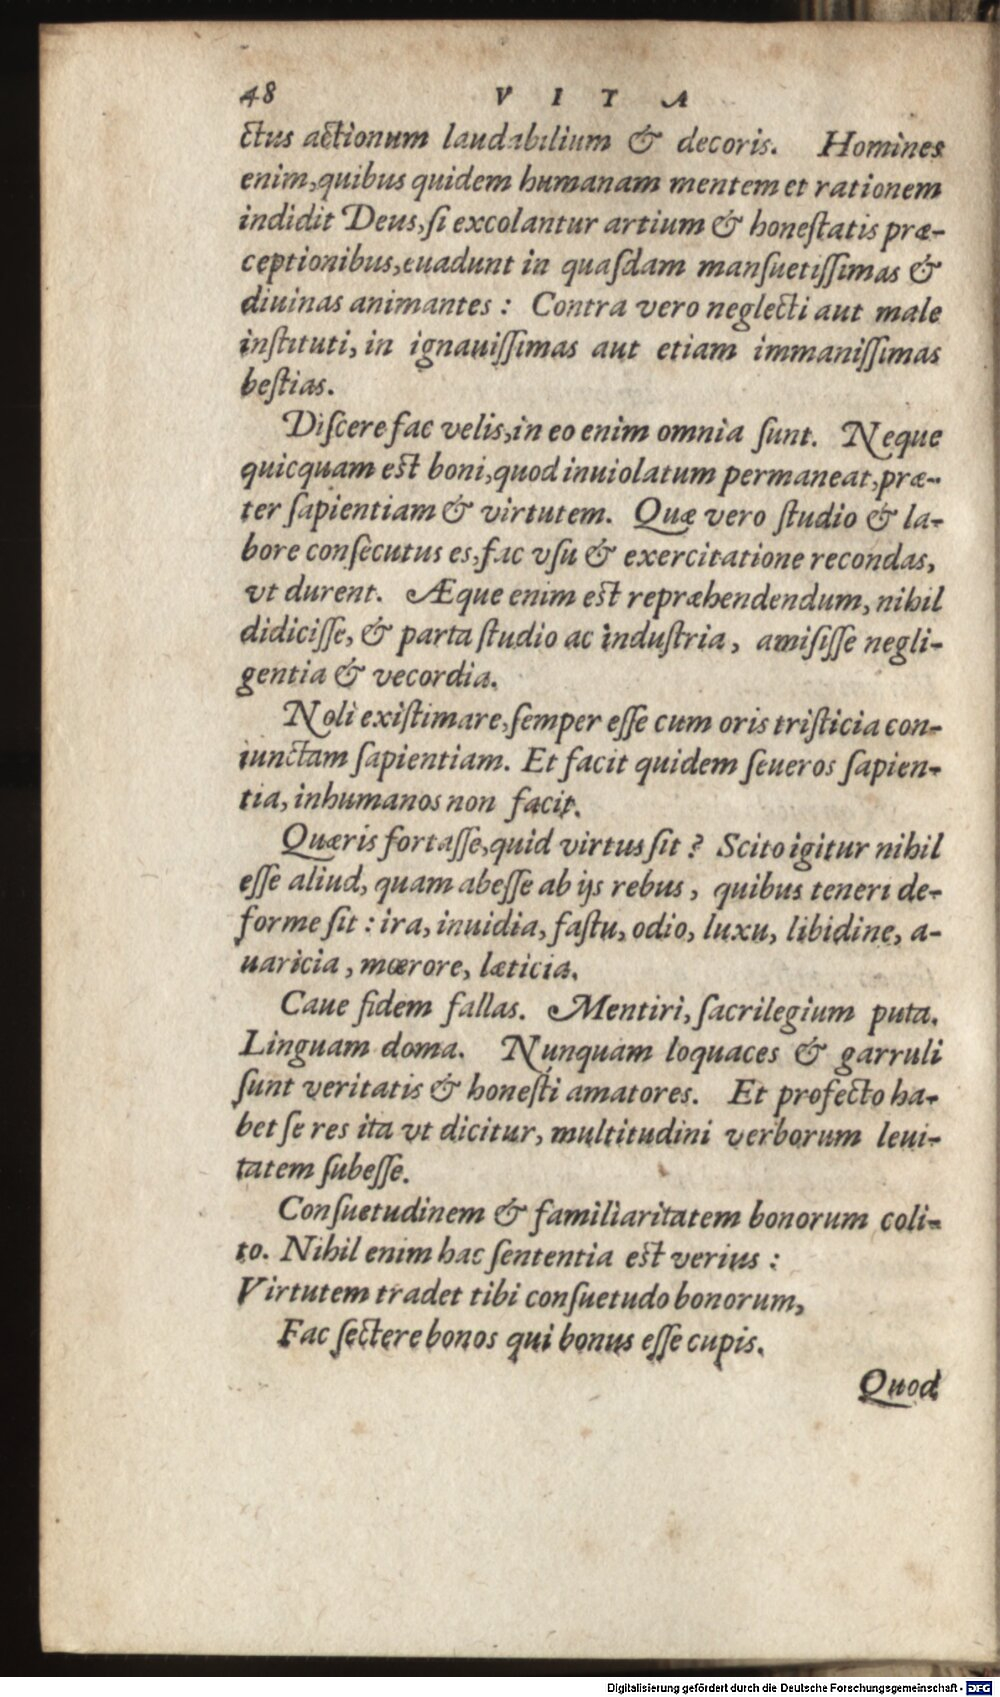 48 VITA
ctus actionum laudabilium & decoris. Homines
enim, quibus quidem humanam mentem et rationem
indidit Deus, ſi excolantur artium & honeſtatis præ-
ceptionibus, euadunt in quaſdam manſuetiſſimas &
diuinas animantes: Contra vero neglecti aut male
inſtituti, in ignauiſſimas aut etiam immaniſſimas
beſtias.
Diſcere fac velis, in eo enim omnia ſunt. Neque
quicquam eſt boni, quod inuiolatum permaneat, præ-
ter ſapientiam & virtutem. Quæ vero ſtudio & la-
bore conſecutus es, fac vſu & exercitatione recondas,
vt durent. Æque enim eſt repræhendendum, nihil
didiciſſe, & parta ſtudio ac induſtria, amiſiſſe negli-
gentia & vecordia.
Noli exiſtimare, ſemper eſſe cum oris triſticia con-
iunctam ſapientiam. Et facit quidem ſeueros ſapien-
tia, inhumanos non facit.
Quæris fortaſſe, quid virtus ſit? Scito igitur nihil
eſſe aliud, quam abeſſe ab ijs rebus, quibus teneri de-
forme ſit: ira, inuidia, faſtu, odio, luxu, libidine, a-
uaricia, mœrore, læticia.
Caue fidem fallas. Mentiri, ſacrilegium puta.
Linguam doma. Nunquam loquaces & garruli
ſunt veritatis & honeſti amatores. Et profecto ha-
bet ſe res ita vt dicitur, multitudini verborum leui-
tatem ſubeſſe.
Conſuetudinem & familiaritatem bonorum coli-
to. Nihil enim hac ſententia eſt verius:
Virtutem tradet tibi conſuetudo bonorum,
Fac ſectere bonos qui bonus eſſe cupis.
Quod
Digitalisierung gefördert durch die Deutsche Forschungsgemeinschaft - DFG